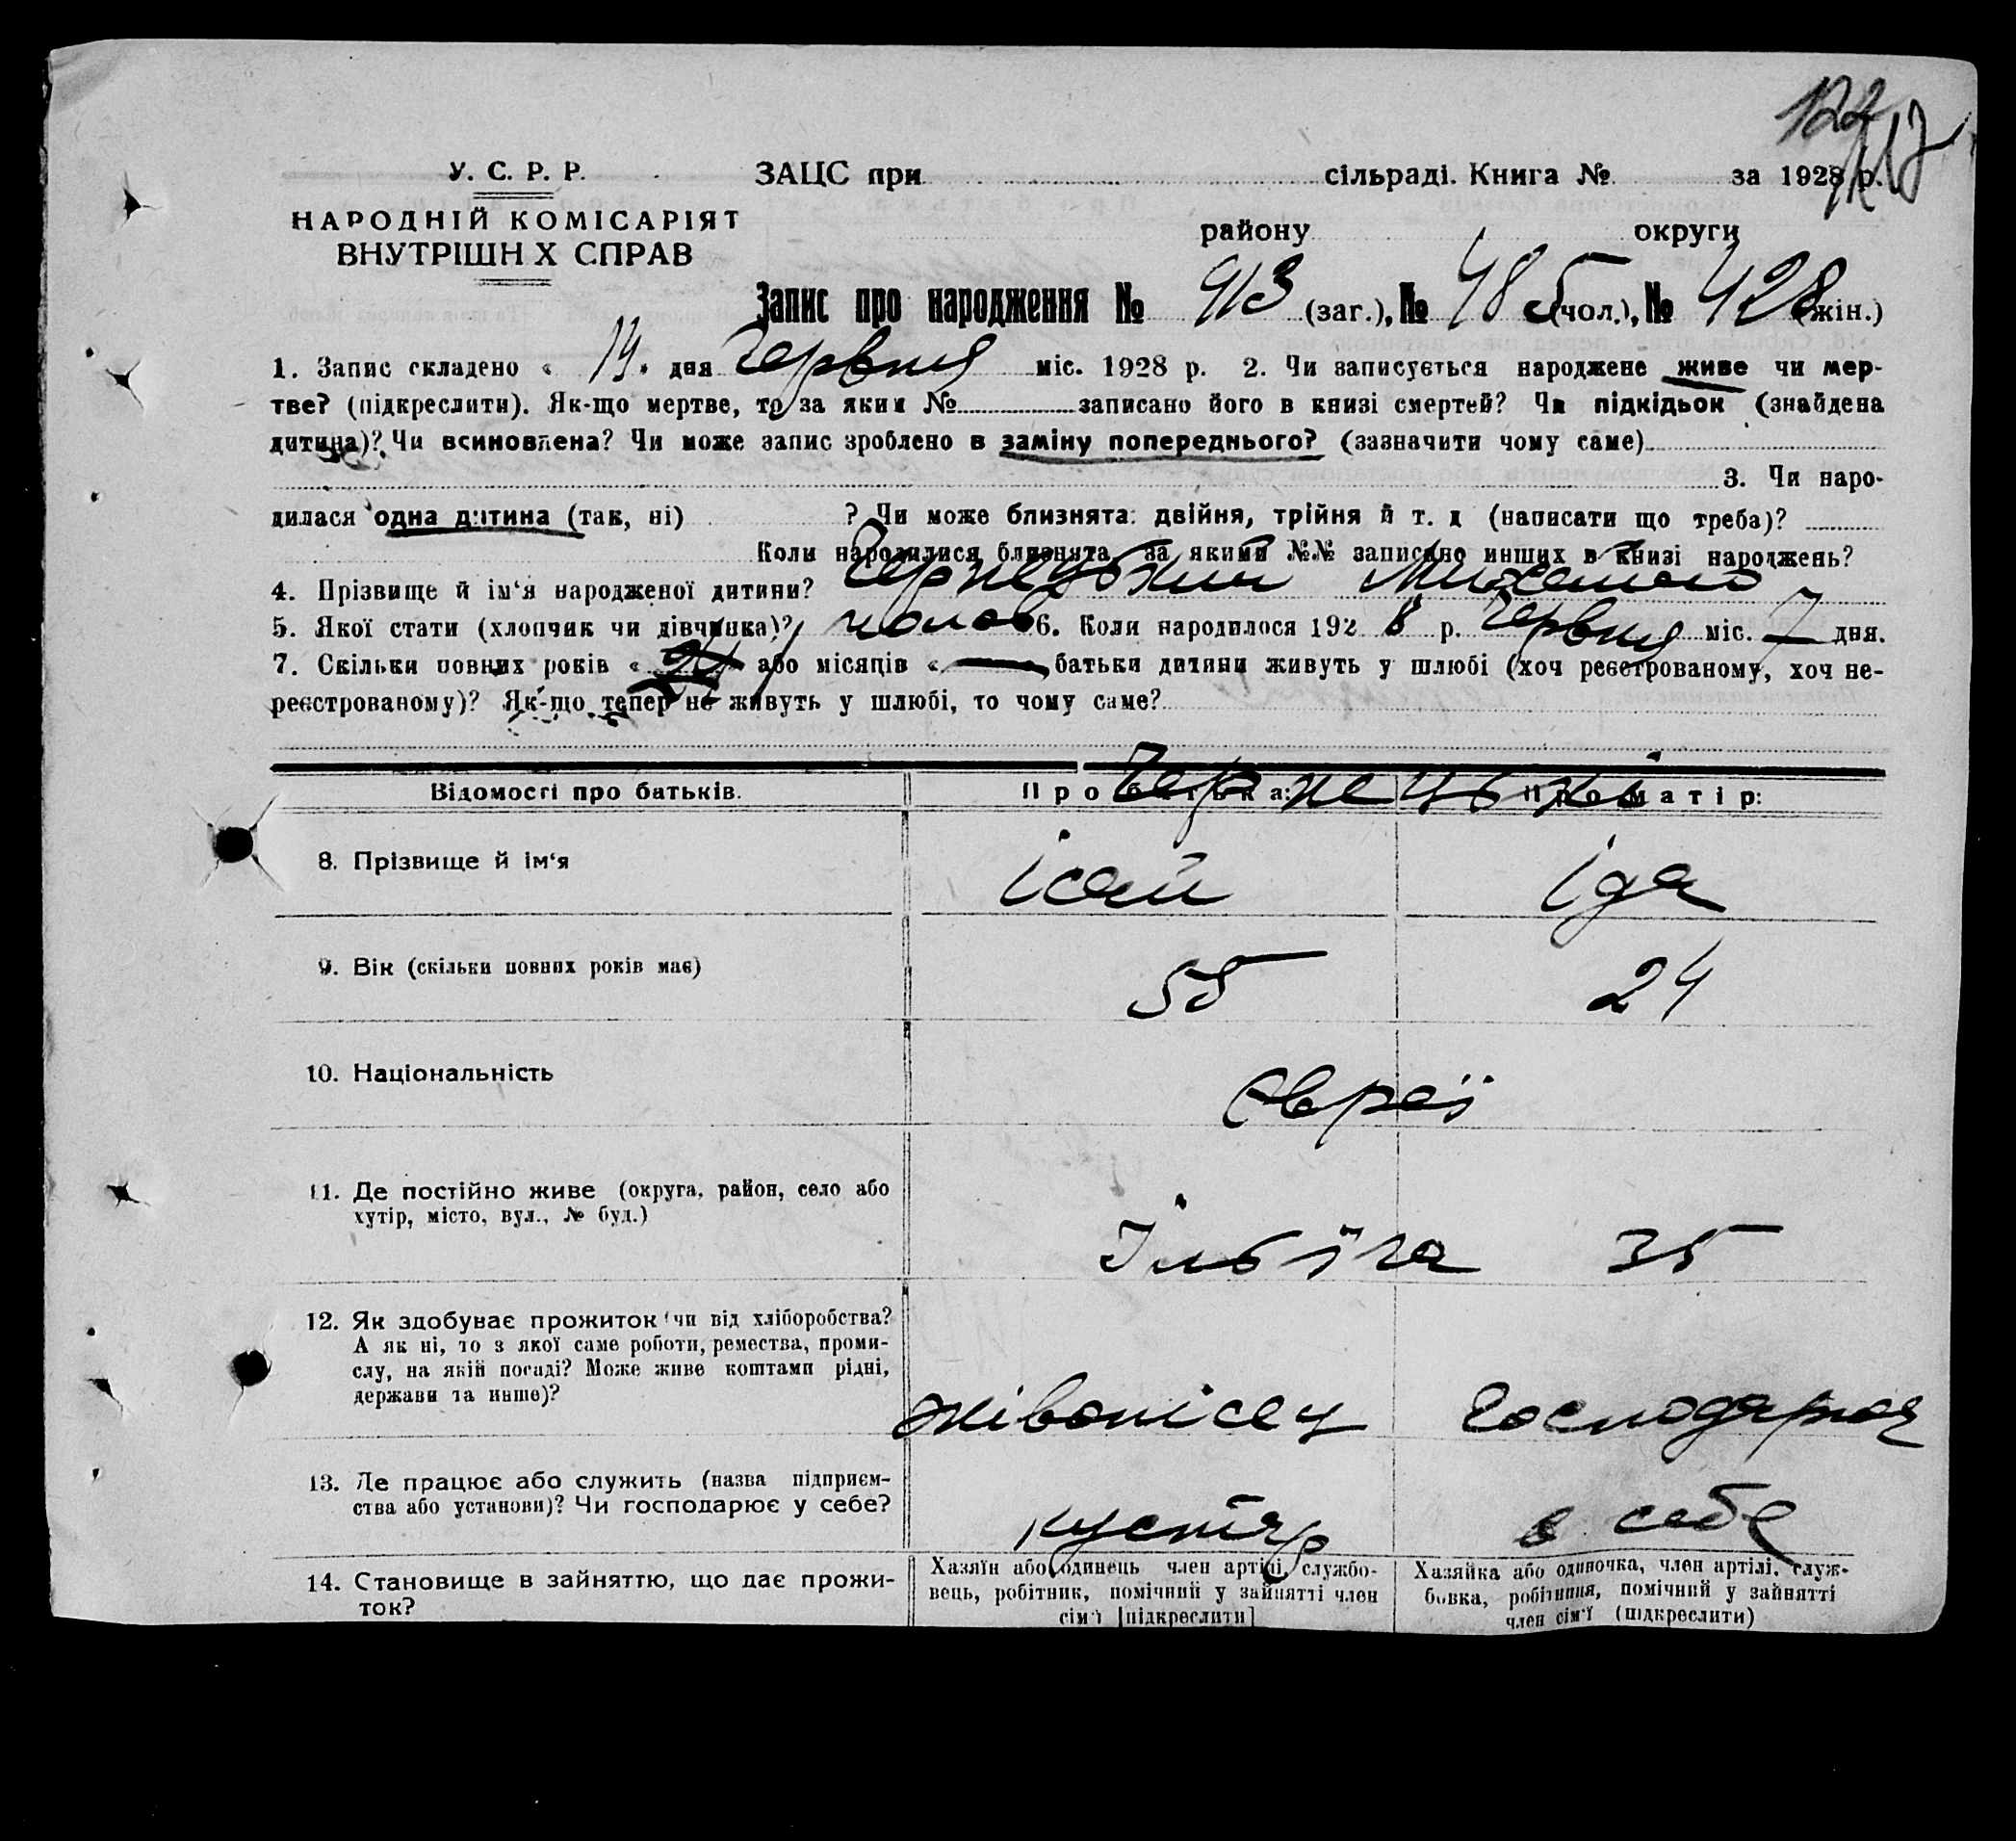 122
У. С. Р. Р. ЗАЦС при сільраді. Книга № за 1928 р.
НАРОДНІЙ КОМІСАРІЯТ району округи
ВНУТРІШН Х СПРАВ
Запис про народження № 913 (заг.), № 485 (чол.), № 428 (жін.)
1. Запис складено « 14 » дня червня міс. 1928 р. 2. Чи записується народжене живе чи мер-
тве? (підкреслити). Як-що мертве, то за яким № записано його в книзі смертей? Чи підкідьок (знайдена
дитина)? Чи всиновлена? Чи може запис зроблено в заміну попереднього? (зазначити чому саме)
3. Чи наро-
дилася одна дитина (так, ні) ? Чи може близнята: двійня, трійня й т. д (написати що треба)?
Коли народилися близнята, за якими №№ записано инших в книзі народжень?
4. Прізвище й ім‘я народженої дитини? Чернецький Михайло
5. Якої стати (хлопчик чи дівчинка)? чолов 6. Коли народилося 1928 р. червня міс. 7 дня.
7. Скільки повних років « або місяців « батьки дитини живуть у шлюбі (хоч реєстрованому, хоч не-
реєстрованому)? Як-що тепер не живуть у шлюбі, то чому саме?
Чернецькі
Відомості про батьків. Про батька: Про матір:
8. Прізвище й ім‘я Ісай Іда
9. Вік (скільки повних років має) 55 24
10. Національність Євреї
11. Де постійно живе (округа, район, село або
хутір, місто, вул., № буд.)
Ільїча 35
12. Як здобуває прожиток (чи від хліборобства?
А як ні, то з якої саме роботи, ремества, проми-
слу, на якій посаді? Може живе коштами рідні,
держави та инше)?
живопісец господарка
13. Де працює або служить (назва підприєм-
ства або установи)? Чи господарює у себе?
кустар в себе
14. Становище в зайняттю, що дає прожи-
ток?
Хазяїн або одинець член артілі, службо-
вець, робітник, помічний у зайнятті член
сім‘ї [підкреслити]
Хазяйка або одиночка, член артілі, служ-
бовка, робітниця, помічний у зайнятті
член сім‘ї (підкреслити)